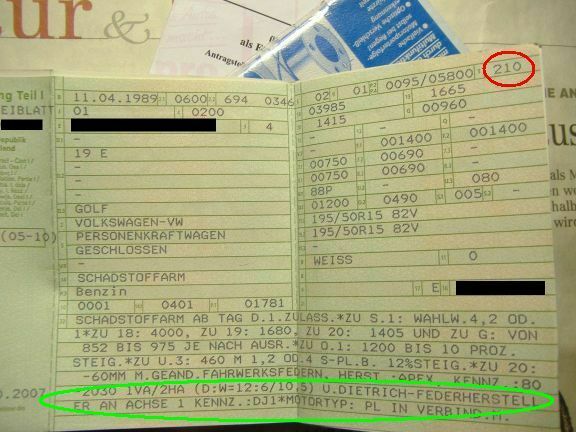 ur &
als F
Antragstel
ng Teil I
EIBLATT
(05-10)
0.2007
11.04.1989 0600 694 0346
01 0200
4
-
-
19 E
-
-
GOLF
VOLKSWAGEN-VW
PERSONENKRAFTWAGEN
GESCHLOSSEN
-
SCHADSTOFFARM
Benzin
0001 0401 01781
02 01 0095/05800 210
03985 1665
1415 00960
- -
- 001400 001400
00750 00690 -
00750 00690 -
88P - 080
01200 0490 005 -
195/50R15 82V
195/50R15 82V
-
WEISS 0
E
SCHADSTOFFARM AB TAG D.1.ZULASS.*ZU S.1: WAHLW.4,2 OD.
1*ZU 18: 4000, ZU 19: 1680, ZU 20: 1405 UND ZU G: VON
852 BIS 975 JE NACH AUSR.*ZU O.1: 1200 BIS 10 PROZ.
STEIG.*ZU U.3: 460 M 1,2 OD.4 S-PL.B. 12%STEIG.*ZU 20:
-60MM M.GEAND.FAHRWERKSFEDERN, HERST.:APEX, KENNZ.:80
-2030 1VA/2HA (D:W=12:6/10.5) U.DIETRICH-FEDERHERSTELL
ER AN ACHSE 1 KENNZ.:DJ1*MOTORTYP: PL IN VERBIND.M.
E AN
us
als M
en we
halb
wird